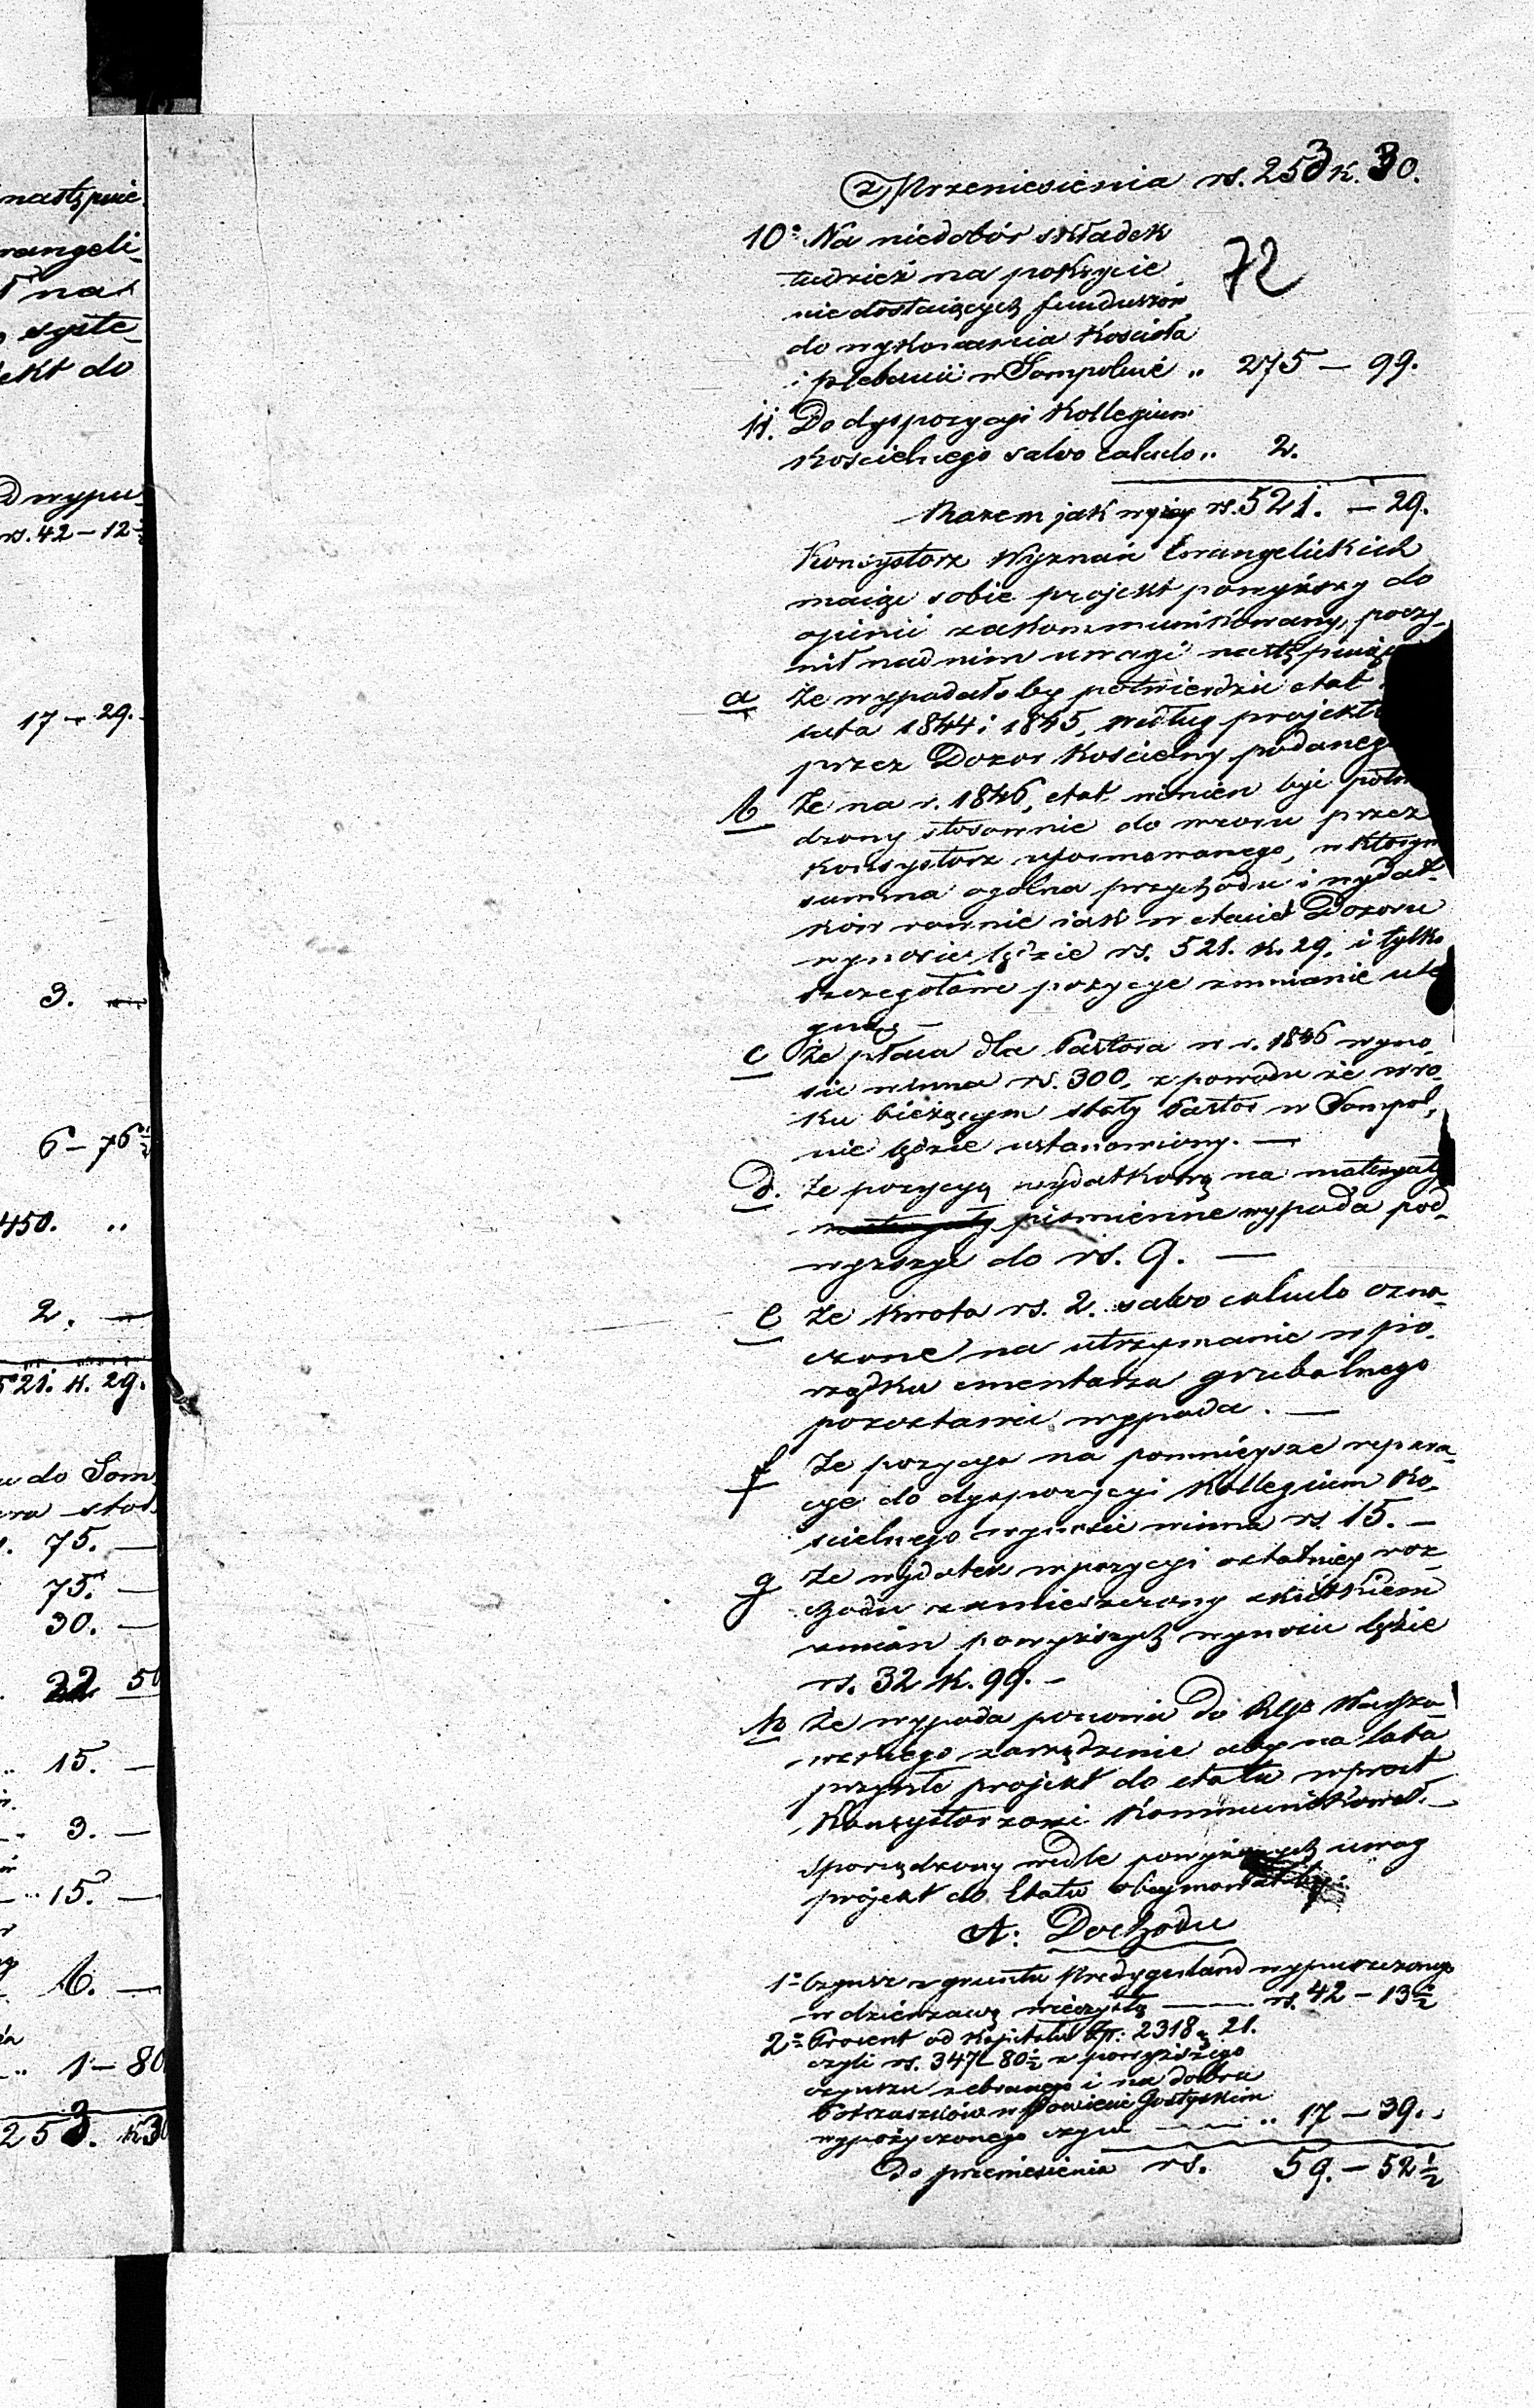 nastęnie
wangeli-
ł na
syste-
ekt do
d wypu-
rs. 42 – 12 ½
17 – 29.
3. —
6 – 76 ½
450. ..
2. —
521. k. 29.
u do Som
wa stos
75. —
75. —
30. —
22. 50
.. 15. —
3. —
.. 15. —
6. —
.. 1 – 80
253. k 30
z Przeniesienia rs. 253 k. 30.
72
10° Na niedobór składek
tudzież na pokrycie
niedostaiących funduszów
do wykonania Kościoła
i plebanii w Sompolnie .. 275 — 99.
11. Do dyspozycyi Kollegium
Koscielnego salvo calculo .. 2.
Razem jak wyżey rs. 521. — 29.
Konsystorz Wyznań Ewangelickich
maiąc sobie projekt powyższy do
opinii zakommunikowany, poczy-
nił nad nim uwagi nastę
a Że wypadałoby potwierdzić etat
lata 1844 i 1845, według projektu
przez Dozor Koscielny podaneg
b Że na r. 1846, etat winien być potw
dzony stosownie do wzoru przez
Konsystorz uformowanego, w którym
summa ogólna przychodu i wydat-
ków rownie iak w etacie Dozoru
wynosić będzie rs. 521. k. 29. i tylko
szczegółowe pozycye zmmianie ule
gną —
c Że płaca dla Pastora w r. 1846 wyno-
sić winna rs. 300, z powodu że w ro-
ku bieżącym stały Pastor w Sompol-
nie będzie ustanowiony. —
d. Że pozycyą wydatkową na materyały
materyały piśmienne wypada pod-
wyższyć do rs. 9. —
e Że kwota rs. 2. salvo calculo ozna-
czone na utrzymanie w po-
rządku cmentarza grzebalnego
pozostawić wypada. —
f Że pozycya na pomnieysze repara-
cye do dyspozycyi Kollegium Ko-
scielnego wynosić winna rs. 15. —
g Że wydatek w pozycyi ostatniey roz-
chodu zamieszczony skutkiem
zmian powyższych wynosić będzie
rs. 32 k. 99. —
h Że wypada ponowić do Rządu Warsza-
wskiego zarządzenie aby na lata
przyszłe projekt do etatu wprost
Konsystorzowi Kommunikował. —
Sporządzony wedle powyższych uwag
projekt do Etatu obeymował by:
A: Dochodu
1° Czynsz z gruntu Predigerland wypuszczonego
w dzierżawę wieczystą —— rs. 42 – 13 ½
2° Procent od Kapitału Złp. 2318 g 21.
czyli rs. 347 – 80 ½ z powyższego
czynszu zebranego i na dobra
w Powiecie Gostyńskim
wypożyczonego czyni —— .. 17 – 39.
Do przeniesienia rs. 59. – 52 ½